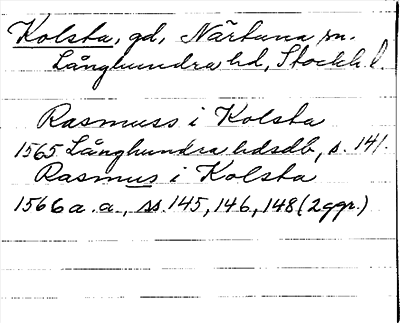 Kolsta, gd, Närtuna sn.
Långhundra hd, Stockh. l.
Rasmuss i Kolsta
1565 Långhundra hdsdb, s. 141.
Rasmus i Kolsta
1566 a.a., ss. 145, 146, 148 (2 ggr.)